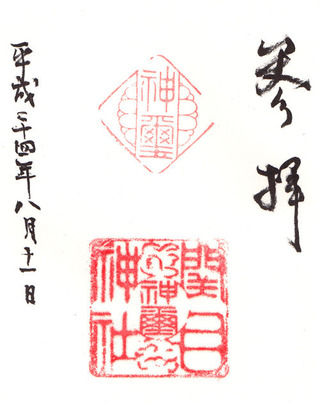 奉拝
神璽
開口
神璽
神社
平成二十四年八月十一日